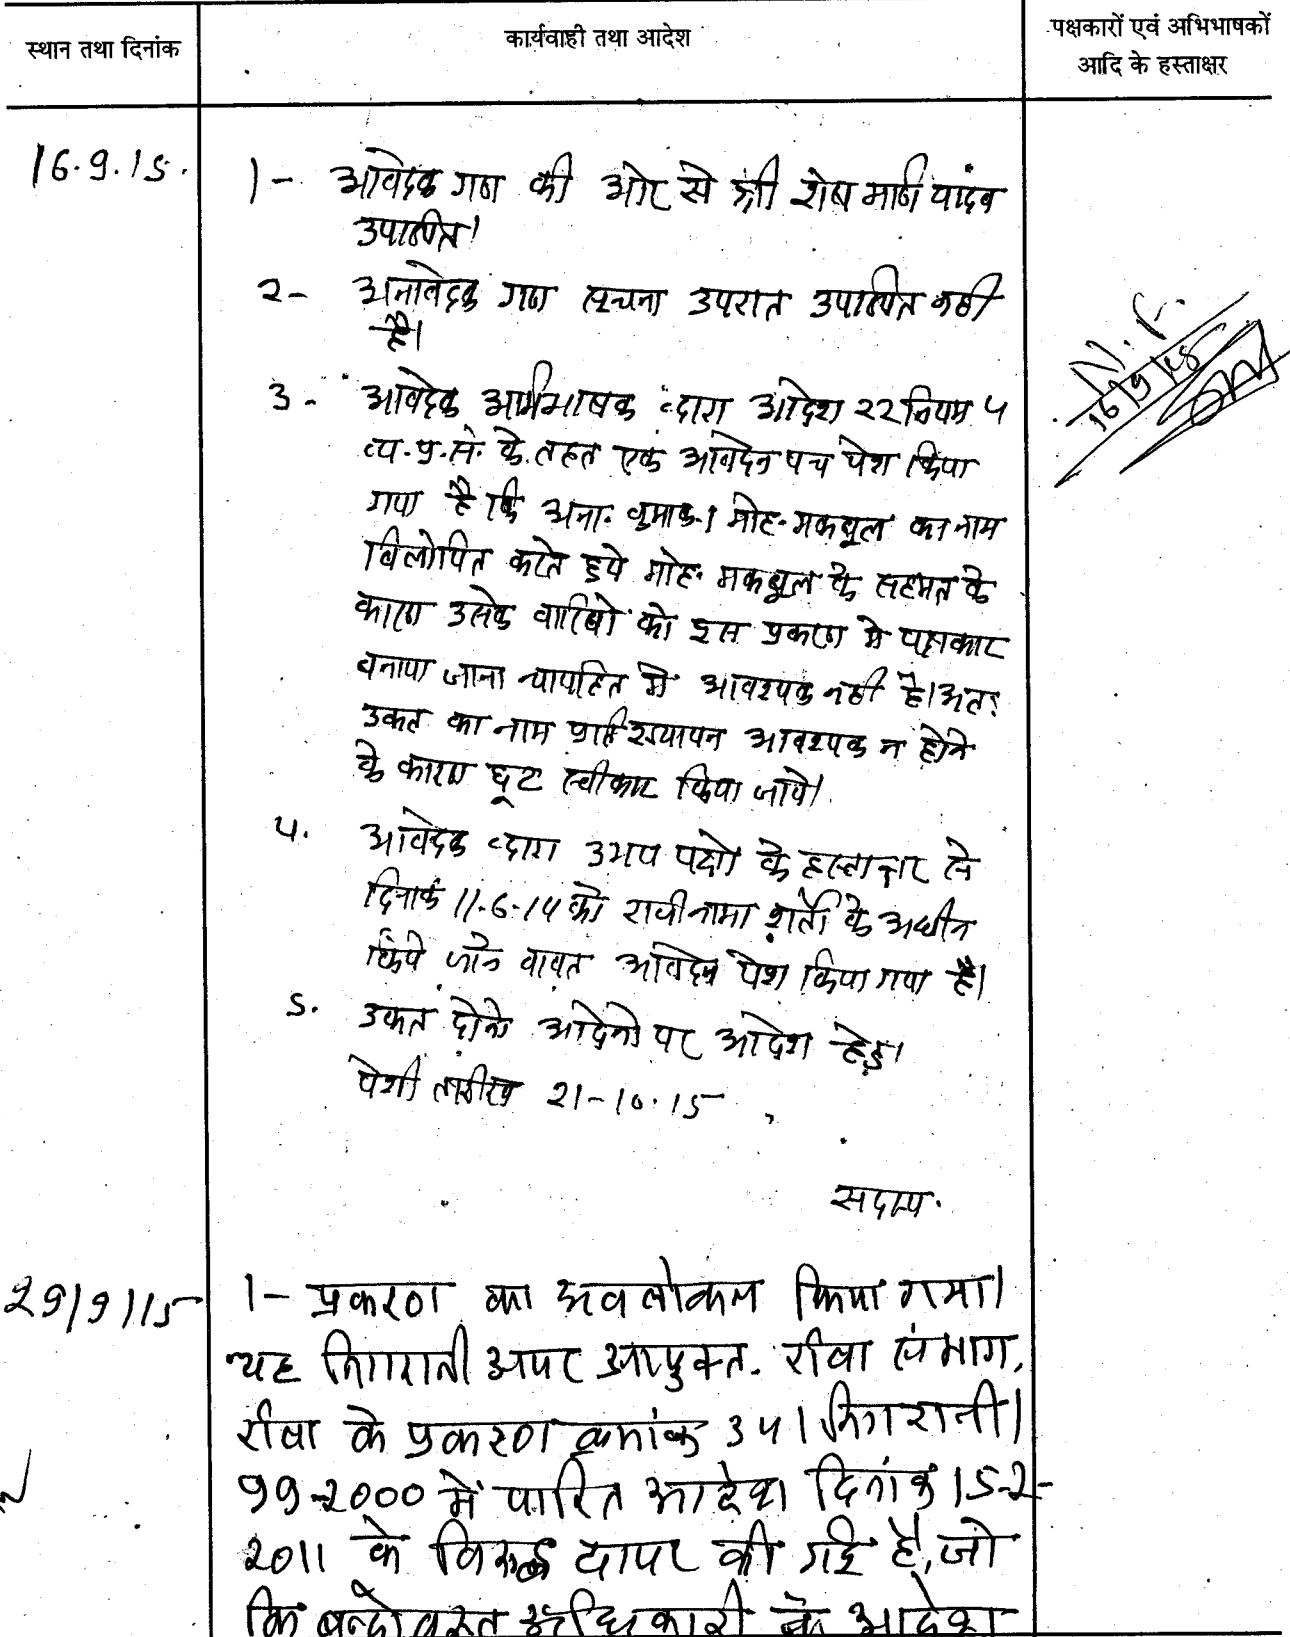 स्थान तथा दिनांक
कार्यवाही तथा आदेश
पक्षकारों एवं अभिभाषकों
आदि के हस्ताक्षर
16.9.15.
1- आवेदक गण की ओर से श्री शेष मणि यादव
उपस्थित।
2- अनावेदक गण सूचना उपरांत उपस्थित नही
है।
3- आवेदक अभिभाषक द्वारा आदेश 22 नियम 4
व्य.प्र.सं. के तहत एक आवेदन पत्र पेश किया
गया है कि अना. क्रमांक.1 मोह. मकबूल का नाम
विलोपित करते हुये मोह. मकबूल के सहमत के
कारण उसके वारिसो को इस प्रकरण मे पक्षकार
बनाया जाना न्यायहित मे आवश्यक नही है। अतः
उक्त का नाम प्रतिस्थापन आवश्यक न होने
के कारण छूट स्वीकार किया जावे।
4. आवेदक द्वारा उभय पक्षो के हस्ताक्षर से
दिनांक 11-6-14 को राजीनामा शर्तो के अधीन
किये जाने बावत आवेदन पेश किया गया है।
5. उक्त दोनो आवेदनो पर आदेश हेतु।
पेशी तारीख 21-10.15
N.P.
16/9/15
सदस्य.
29/9/15
1- प्रकरण का अवलोकन किया गया।
यह निगरानी अपर आयुक्त. रीवा संभाग,
रीवा के प्रकरण क्रमांक 341 निगरानी।
99-2000 में पारित आदेश दिनांक 15-2-
2011 के विरूद्ध दायर की गई है, जो
कि बन्दोबस्त अधिकारी के आदेश